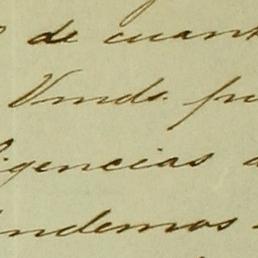 de cuant
Vmds. pu
igencias a
ndemos